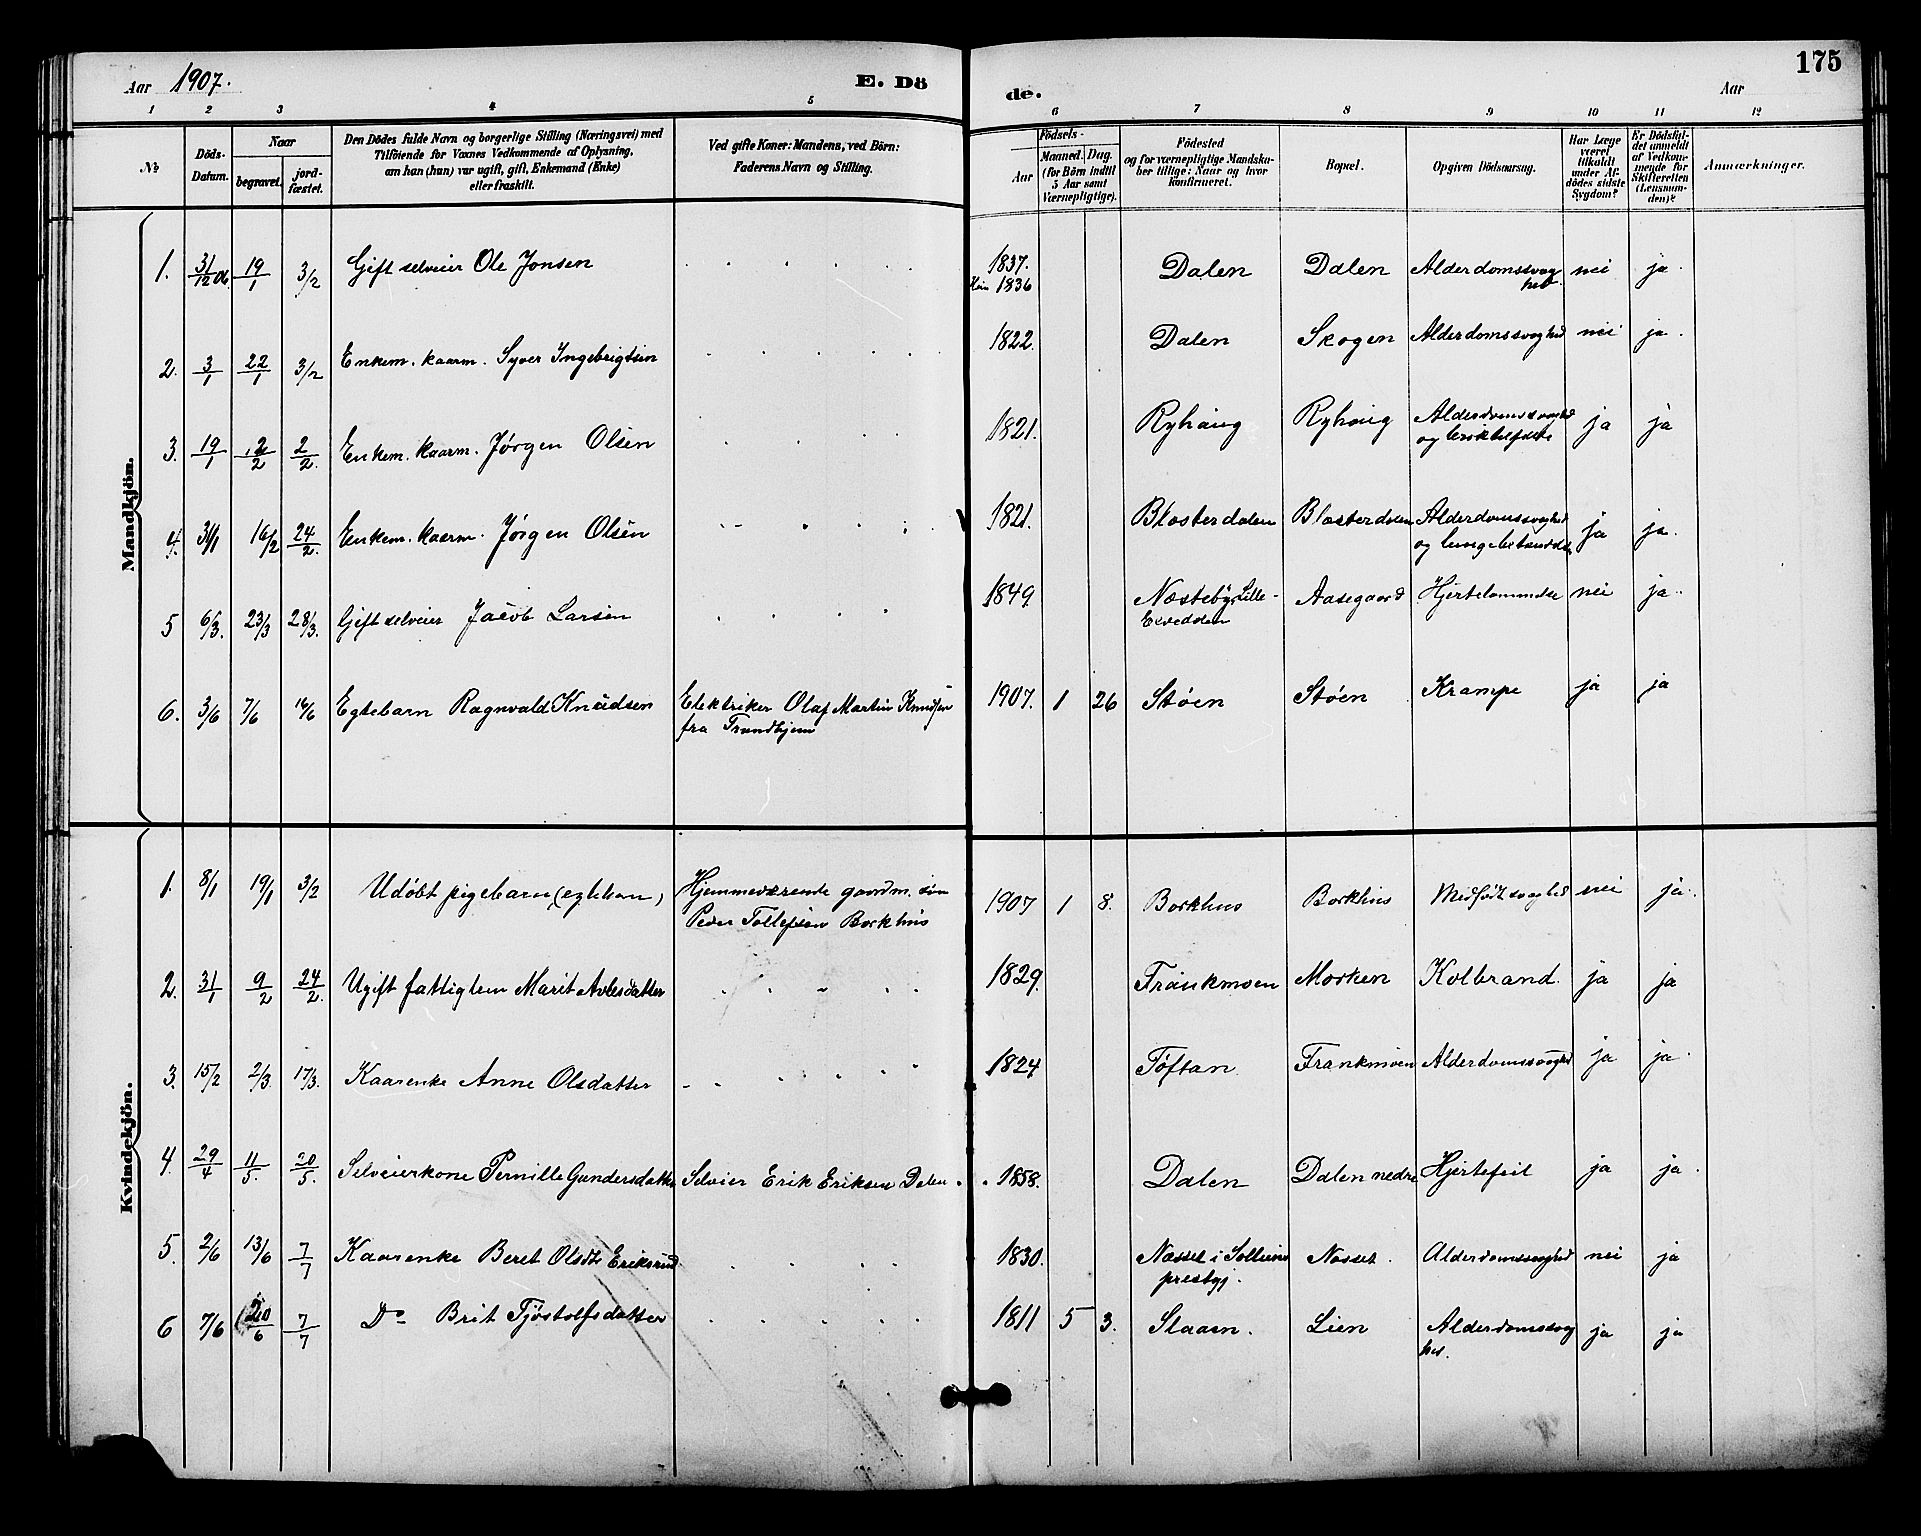 175
Aar 1907.
E. Dö
de.
Aar
1 2 3 4 5 6 7 8 9 10 11 12
№
Döds-Datum.
Naar
begravet.
jord-fæstet.
Den Dödes fulde Navn og borgerlige Stilling (Næringsvei) med
Tilföiende for Voxnes Vedkommende af Oplysning,
om han (hun) var ugift, gift, Enkemand (Enke)
eller fraskilt.
Ved gifte Koner: Mandens, ved Börn:
Faderens Navn og Stilling.
Födsels-
Aar
Maaned. Dag.
(for Börn indtil
5 Aar samt
Værnepligtige).
Födested
og for værnepligtige Mandska-
ber tillige: Naar og hvor
konfirmeret.
Bopæl.
Opgiven Dödsaarsag.
Har Læge
været
tilkaldt
under Af-
dödes sidste
Sygdom?
Er Dödsfal-
det anmeldt
af Vedkom-
mende for
Skifteretten
(Lensman-
den)?
Anmærkninger.
Mandkjön.
1. 31/12 06 19/1 3/2 Gift selveier Ole Jonsen 1837. Dalen Dalen Alderdomssvag nei ja.
1836 hed.
2. 3/1 22/1 3/2 Enkem. kaarm. Syver Ingebrigtsen 1822. Dalen Skogen Alderdomssvaghed nei ja.
3. 19/1 2/2 2/2. Enkem. kaarm. Jørgen Olsen 1821. Ryhaug Ryhaug Alderdomssvaghed ja ja
og
4. 31/1 16/2 24/2. Enkem. kaarm. Jørgen Olsen 1821. Blæsterdalen Blæsterdalen Alderdomssvaghed ja ja.
og lungebetændelse
5 6/3. 23/3 28/3. Gift selveier Jacob Larsen 1849. Næsteby Lille- Aasegaard Hjertelammelse nei ja.
Elvedalen
6. 3/6 7/6 16/6 Egtebarn Ragnvald Knudsen Elektriker Olaf Martin Knudsen 1907. 1 26 Støen Støen Krampe ja ja
fra Trondhjem
Kvindekjön.
1. 8/1 19/1 3/2 Udøbt pigebarn (egtebarn) Hjemmeværende gaardm. søn 1907 1 8. Borkhus Borkhus Medfødt svaghed nei ja.
Peder Tollefsen Borkhus
2. 31/1 9/2 24/2. Ugift fattiglem Marit Avlesdatter 1829. Frankmoen Morken Kolbrand. ja ja
3. 15/2 2/3 17/3. Kaarenke Anne Olsdatter 1824 Tøftan Frankmoen Alderdomssvaghed ja ja.
4. 29/4 11/5. 20/5. Selveierkone Pernille Gundersdatter Selvier Erik Eriksen Dalen. 1858. Dalen Dalen nedre Hjertefeil ja ja.
5. 2/6 13/6 7/7 Kaarenke Beret Olsdtr Eriksrud 1830. Næsset i Sollien Næsset. Alderdomssvaghed nei ja
prestgj.
6 7/6 20/6 7/7 Do Brit Tjøstolfsdatter 1811 5 3. Slaaen. Lien Alderdomssvag ja ja
hed.